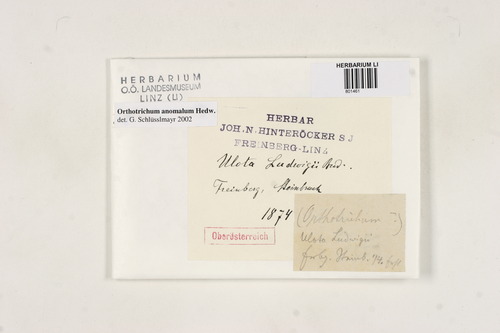 HERBARIUM
O.Ö. LANDESMUSEUM
LINZ (LI)
HERBARIUM LI
Orthotrichum anomalum Hedw.
det. G. Schlüsslmayr 2002
HERBAR
JOH. N. HINTERÖCKER S J
FREINBERG-LINZ
Ulota Ludwigii Brid.
Freinberg, Steinbruch
1874
Oberösterreich
(Orthotrichum ?)
Ulota Ludwigii
frbg. Steinb. 74.